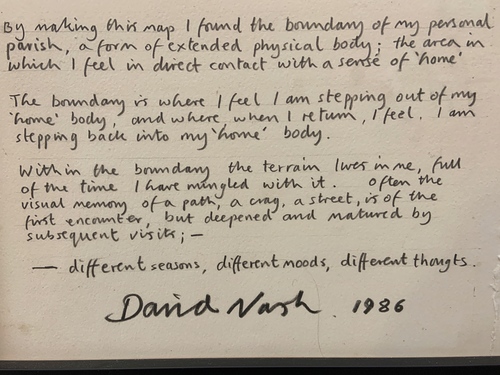 By making this map I found the boundary of my personal
parish, a form of extended physical body; the area in
which I feel in direct contact with a sense of 'home'
The boundary is where I feel I am stepping out of my
'home' body, and where, when I return, I feel. I am
stepping back into my 'home' body.
Within the boundary the terrain lives in me, full
of the time I have mingled with it. often the
visual memory of a path, a crag, a street, is of the
first encounter, but deepened and matured by
subsequent visits; —
— different seasons, different moods, different thougts.
David Nash. 1986